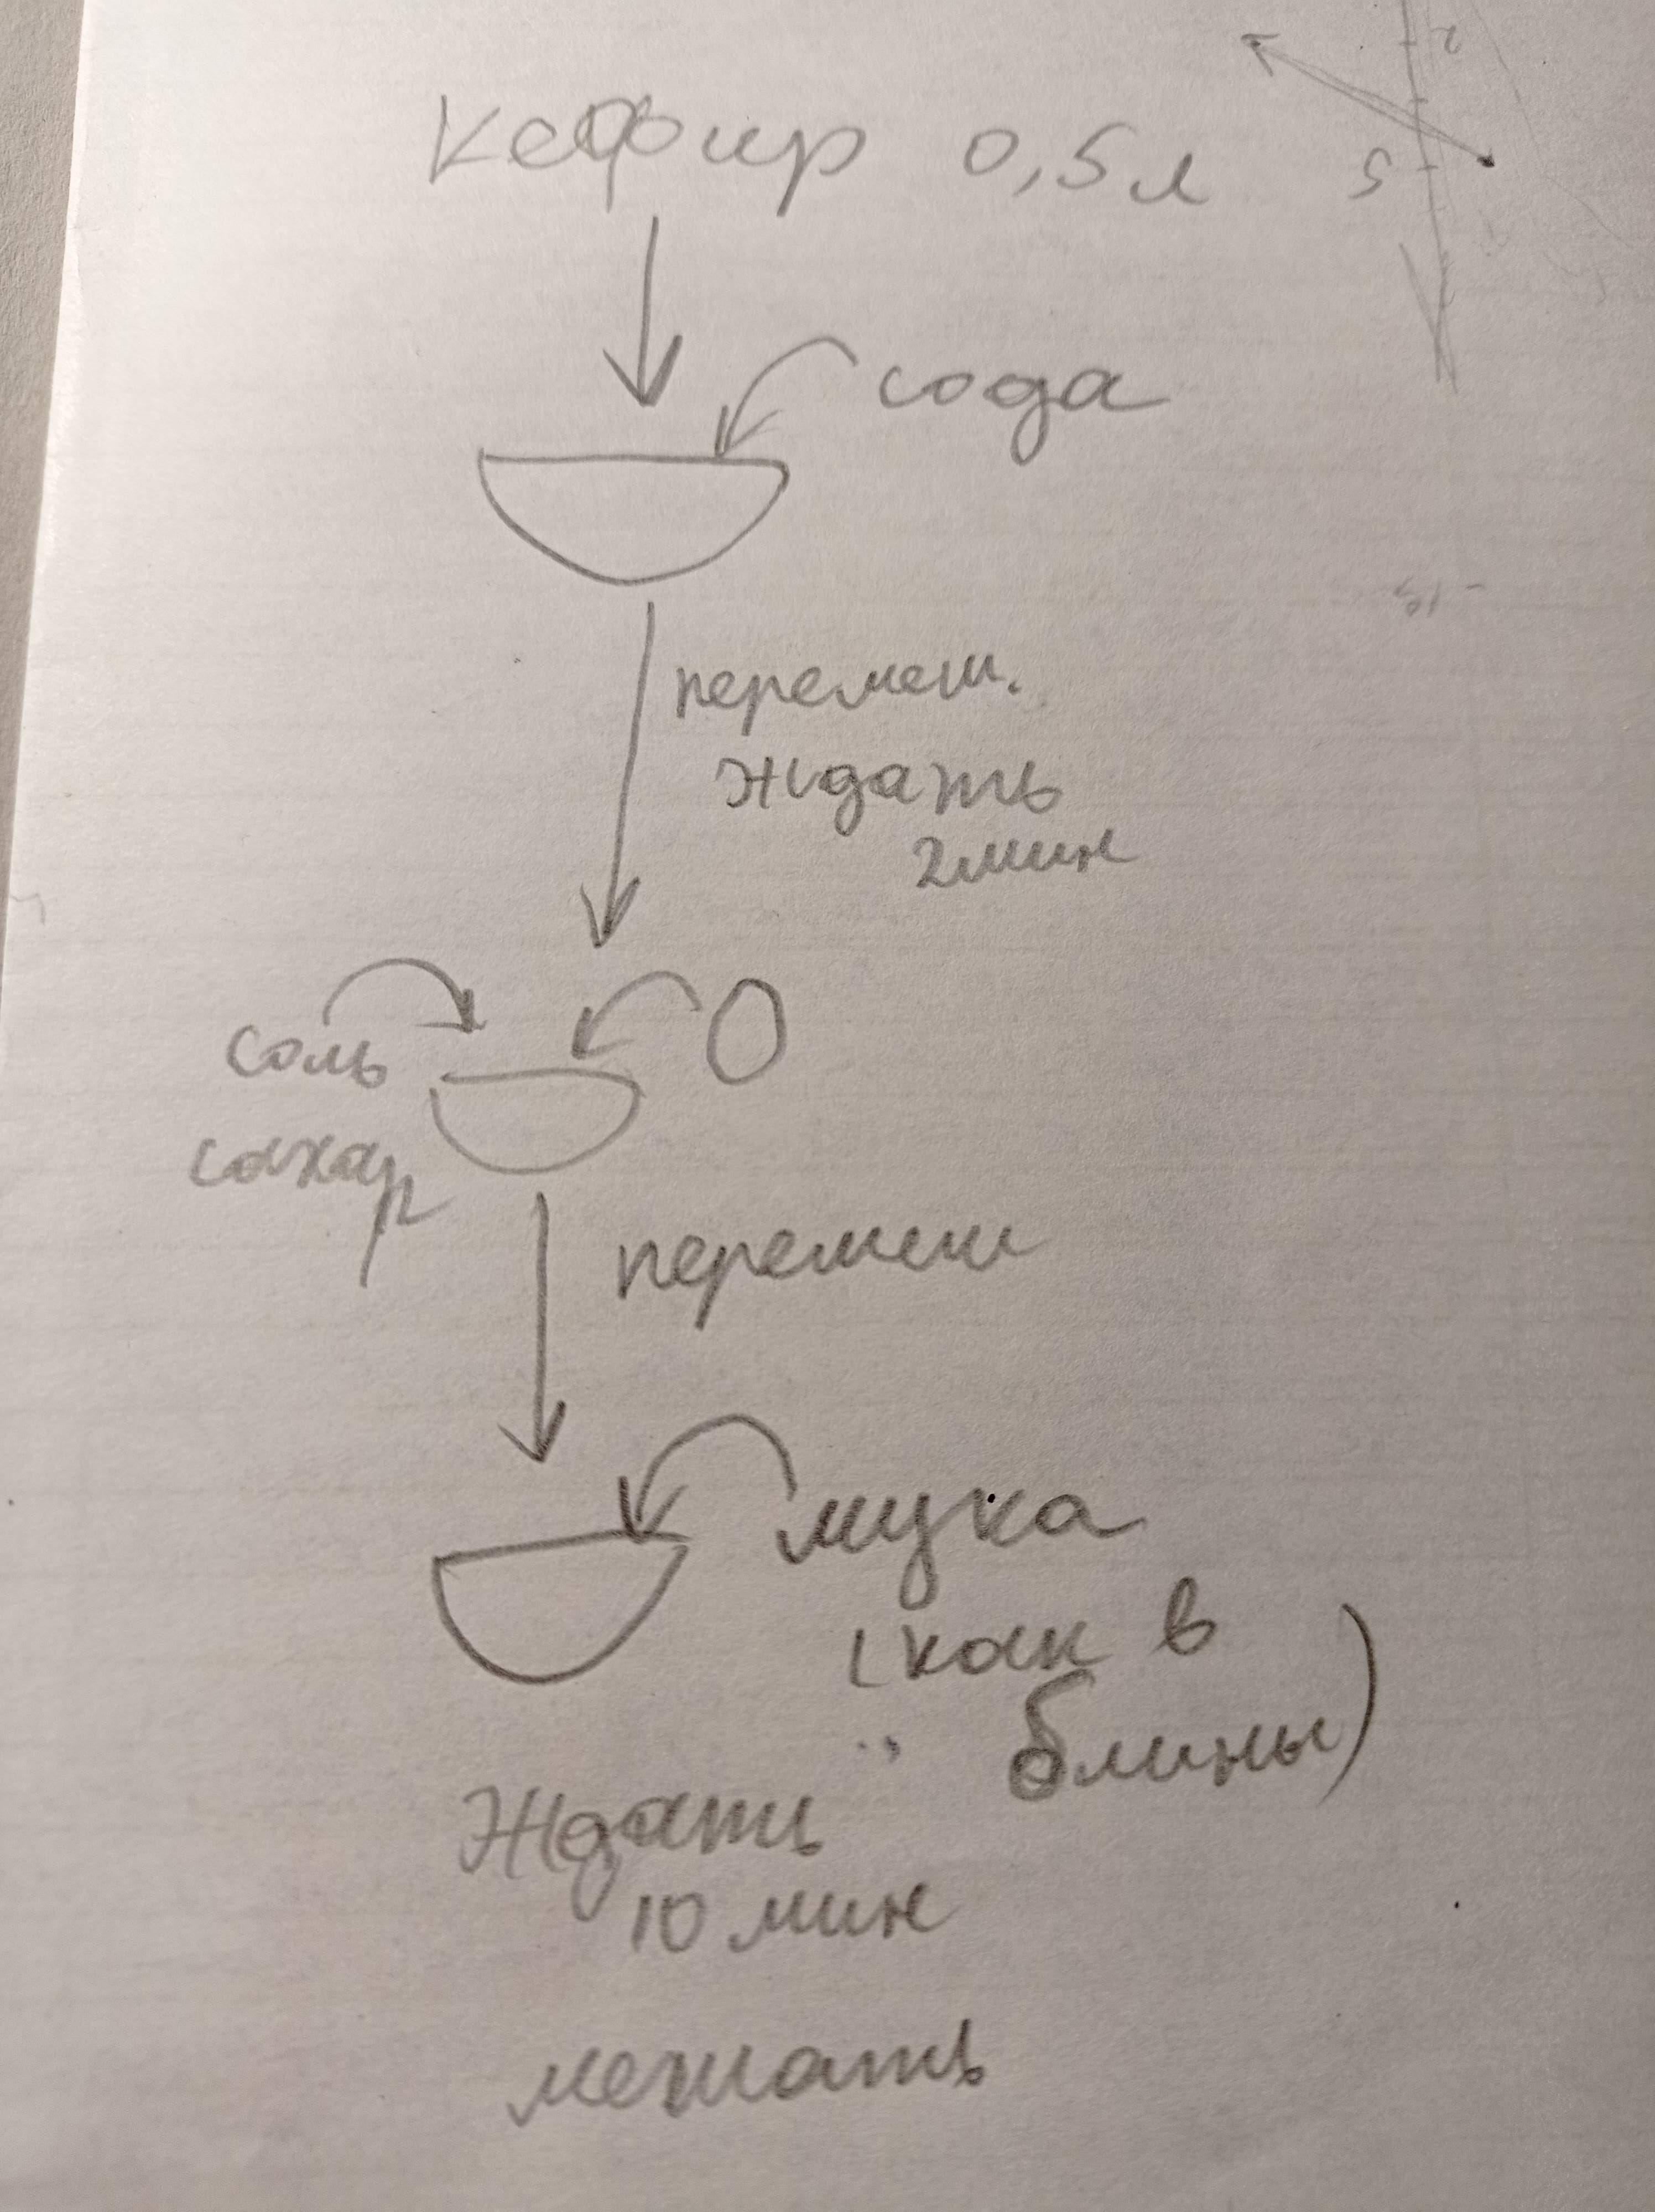 кефир 0,5л
сода
перемеш.
ждать
2мин
соль
сахар
перемеш
мука
(как в
блины)
Ждать
10 мин
2
5